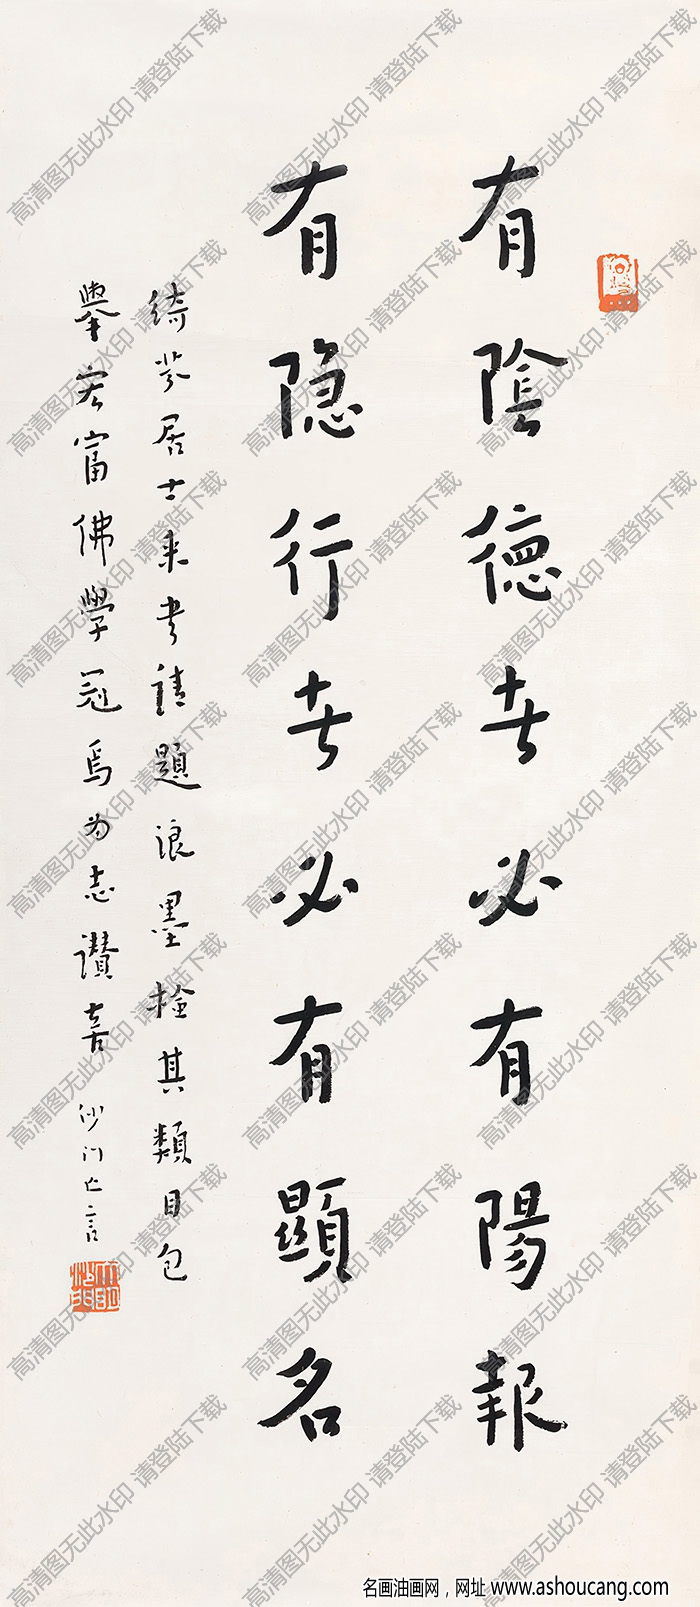 有陰德者必有陽報
有隐行者必有顯名
綺芬居士来书請題浪墨檢其類目包
舉宏富佛學冠焉为志讚喜 沙门亡言
高清图无此水印 请登陆下载
名画油画网，网址 www.ashoucang.com